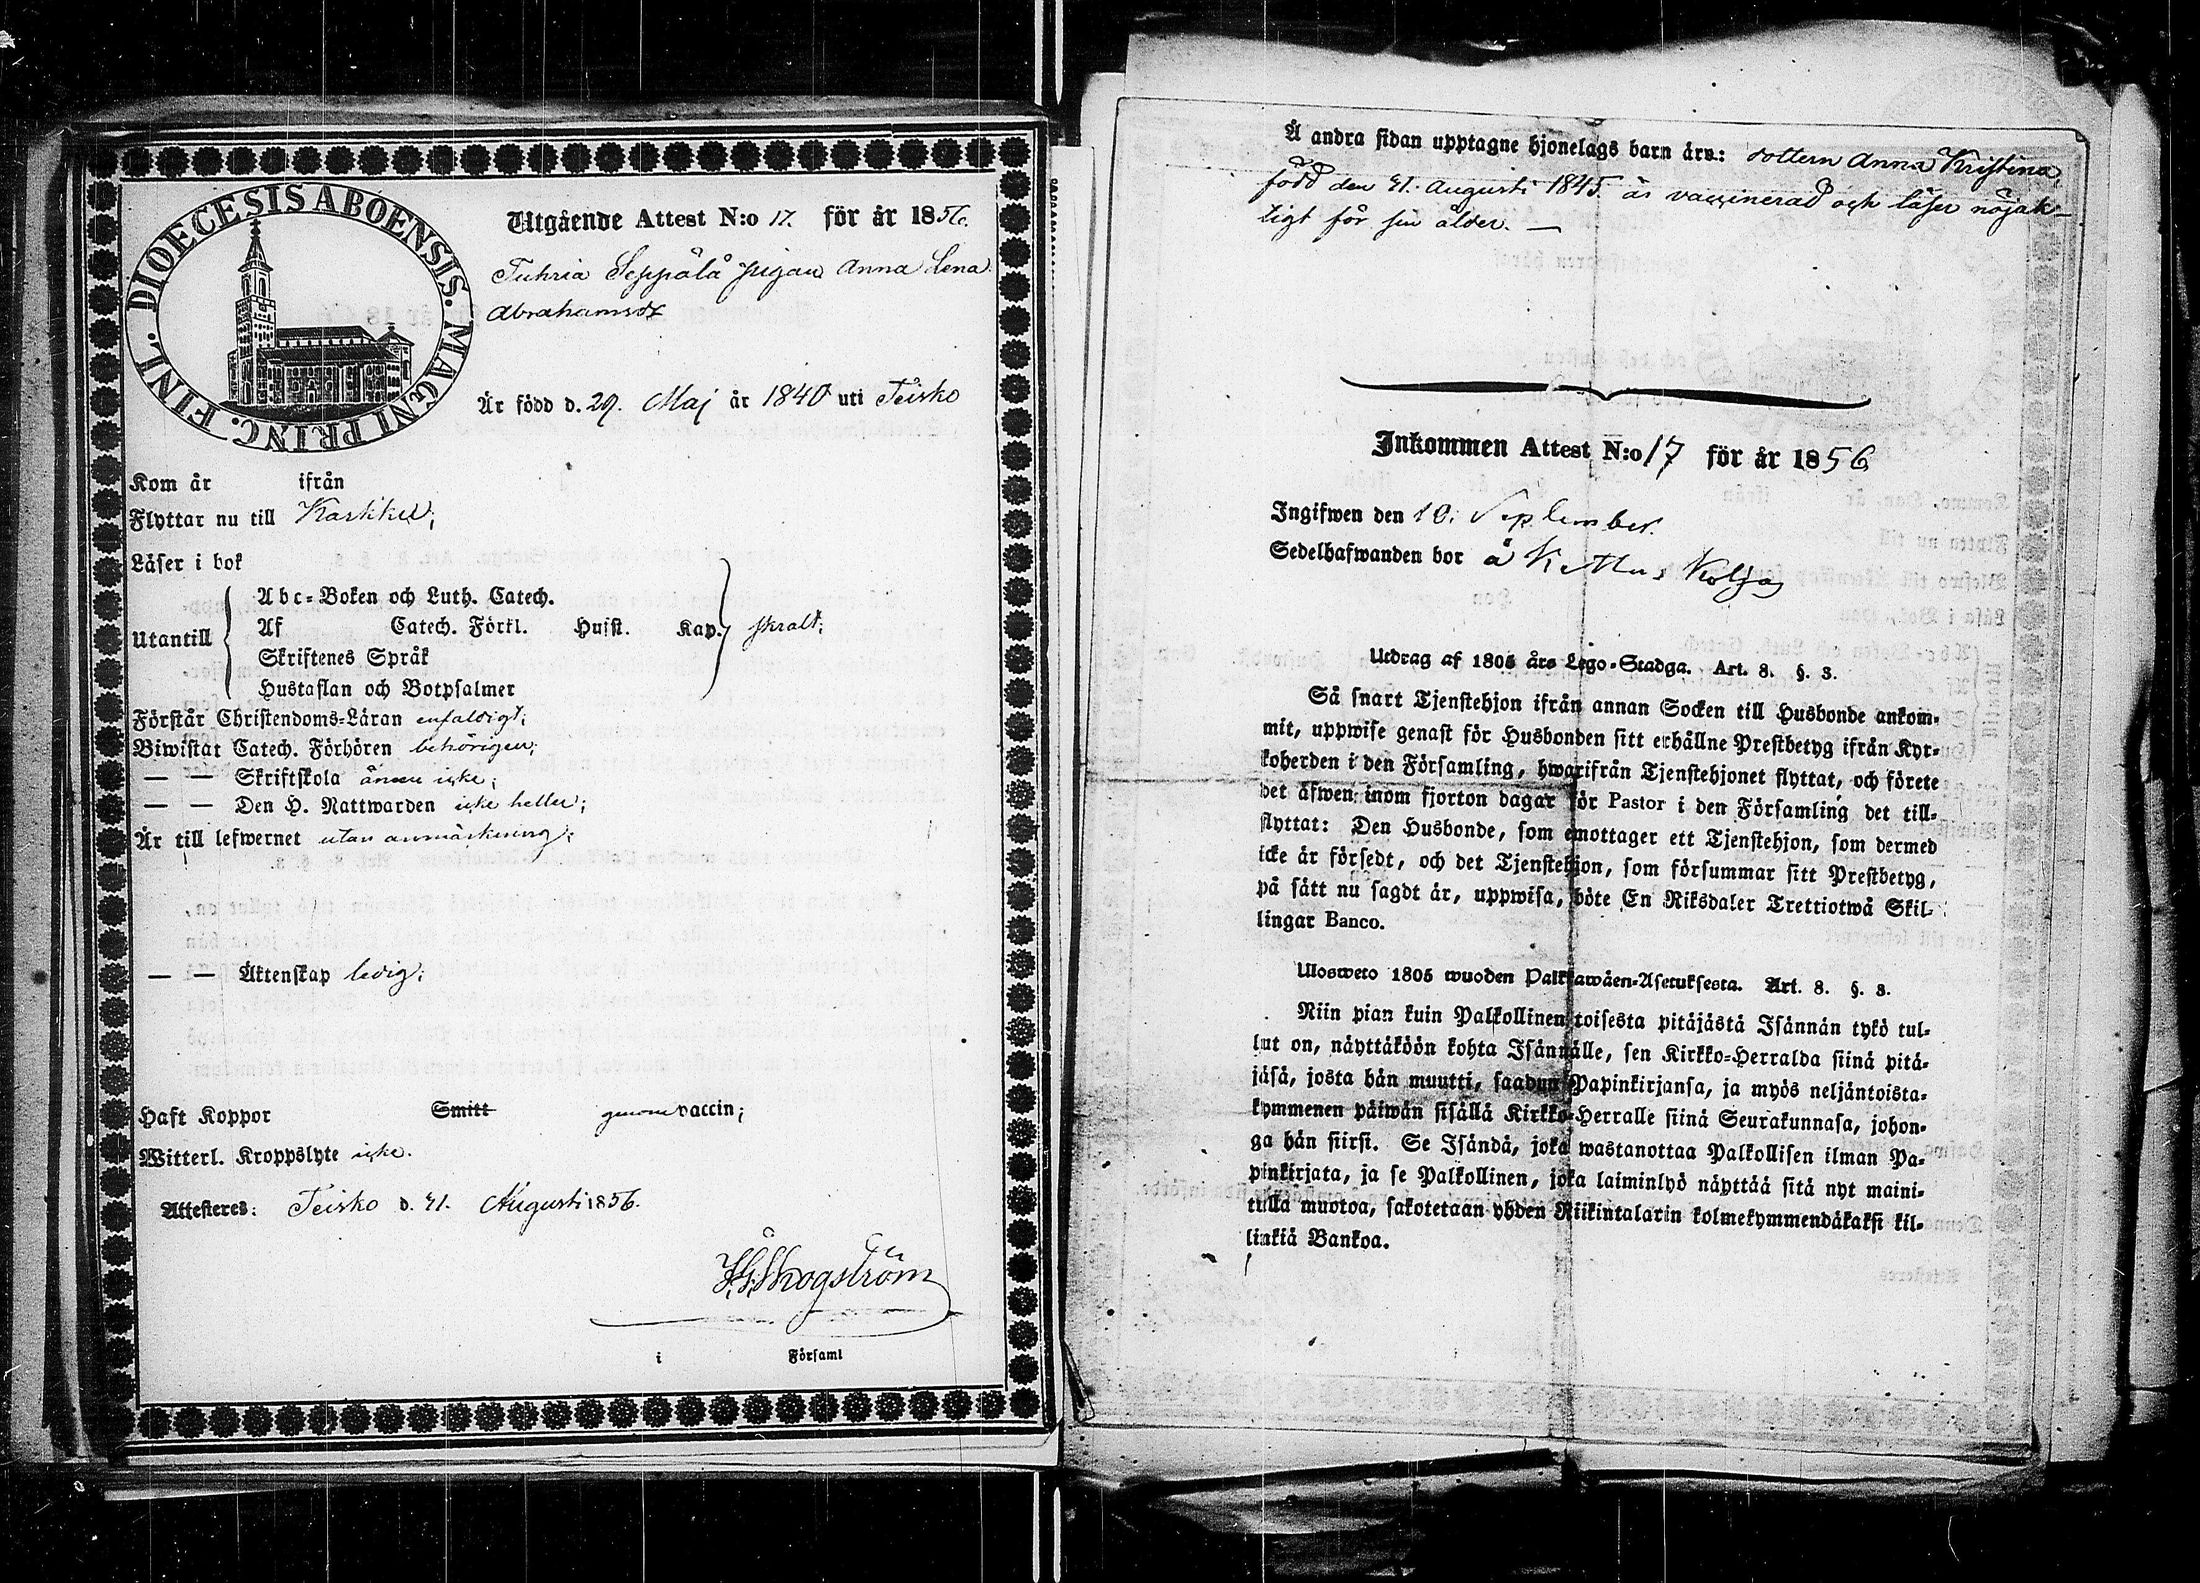 DIOECESIS ABOENSIS. MAGNI PRINC. FINL.
Utgående Attest N:o 17. för år 1856.
Tuhria Seppälä pigan Anna Lena
Abrahamsdr
Är född d. 29. Maj år 1840 uti Teisko
Kom år ifrån
Flyttar nu till Karkku;
Läser i bok
Utantill
Abc-Boken och Luth. Catech.
Af Catech. Förkl. Hufst. Kap. skralt;
Skriftenes Språk
Hustaflan och Botpsalmer
Förstår Christendoms-Läran enfaldigt;
Biwistat Catech. Förhören behörigen;
— — Skriftskola ännu icke;
— — Den H. Nattwarden icke heller;
Är till lefwernet utan anmärkning;
— — Äktenskap ledig;
Haft Koppor Smitt genom vaccin;
Witterl. Kroppslyte icke.
Attesteres: Teisko d. 21. Augusti 1856.
Skogström
i Församl
Å andra sidan upptagne hjonelags barn äro: dottern Anna Kristina,
född den 21. Augusti 1845 är vaccinerad och läser nöjak-
ligt för sin ålder. —
Inkommen Attest N:o 17 för år 1856
Ingifwen den 10. September.
Sedelhafwanden bor å Kettus Kolja
Utdrag af 1805 års Lego-Stadga. Art. 8. §. 3.
Så snart Tjenstehjon ifrån annan Socken till Husbonde ankom-
mit, uppwise genast för Husbonden sitt erhållne Prestbetyg ifrån Kyr-
koherden i den Församling, hwarifrån Tjenstehjonet flyttat, och förete
det äfwen inom fjorton dagar för Pastor i den Församling det till-
flyttat: Den Husbonde, som emottager ett Tjenstehjon, som dermed
icke är försedt, och det Tjenstehjon, som försummar sitt Prestbetyg,
på sätt nu sagdt är, uppwisa, böte En Riksdaler Trettiotwå Skil-
lingar Banco.
Ulosweto 1805 wuoden Palkkawäen-Asetuksesta. Art. 8. §. 3.
Niin pian kuin Palkollinen toisesta pitäjästä Isännän tykö tul-
lut on, näyttäköön kohta Isännälle, sen Kirkko-Herralda siinä pitä-
jäsä, josta hän muutti, saadun Papinkirjansa, ja myös neljäntoista-
kymmenen päiwän sisällä Kirkko-Herralle siinä Seurakunnasa, johon-
ga hän siirsi. Se Isändä, joka wastanottaa Palkollisen ilman Pa-
pinkirjata, ja se Palkollinen, joka laiminlyö näyttää sitä nyt maini-
tulla muotoa, sakotetaan yhden Riikintalarin kolmekymmendäkaksi kil-
linkiä Bankoa.